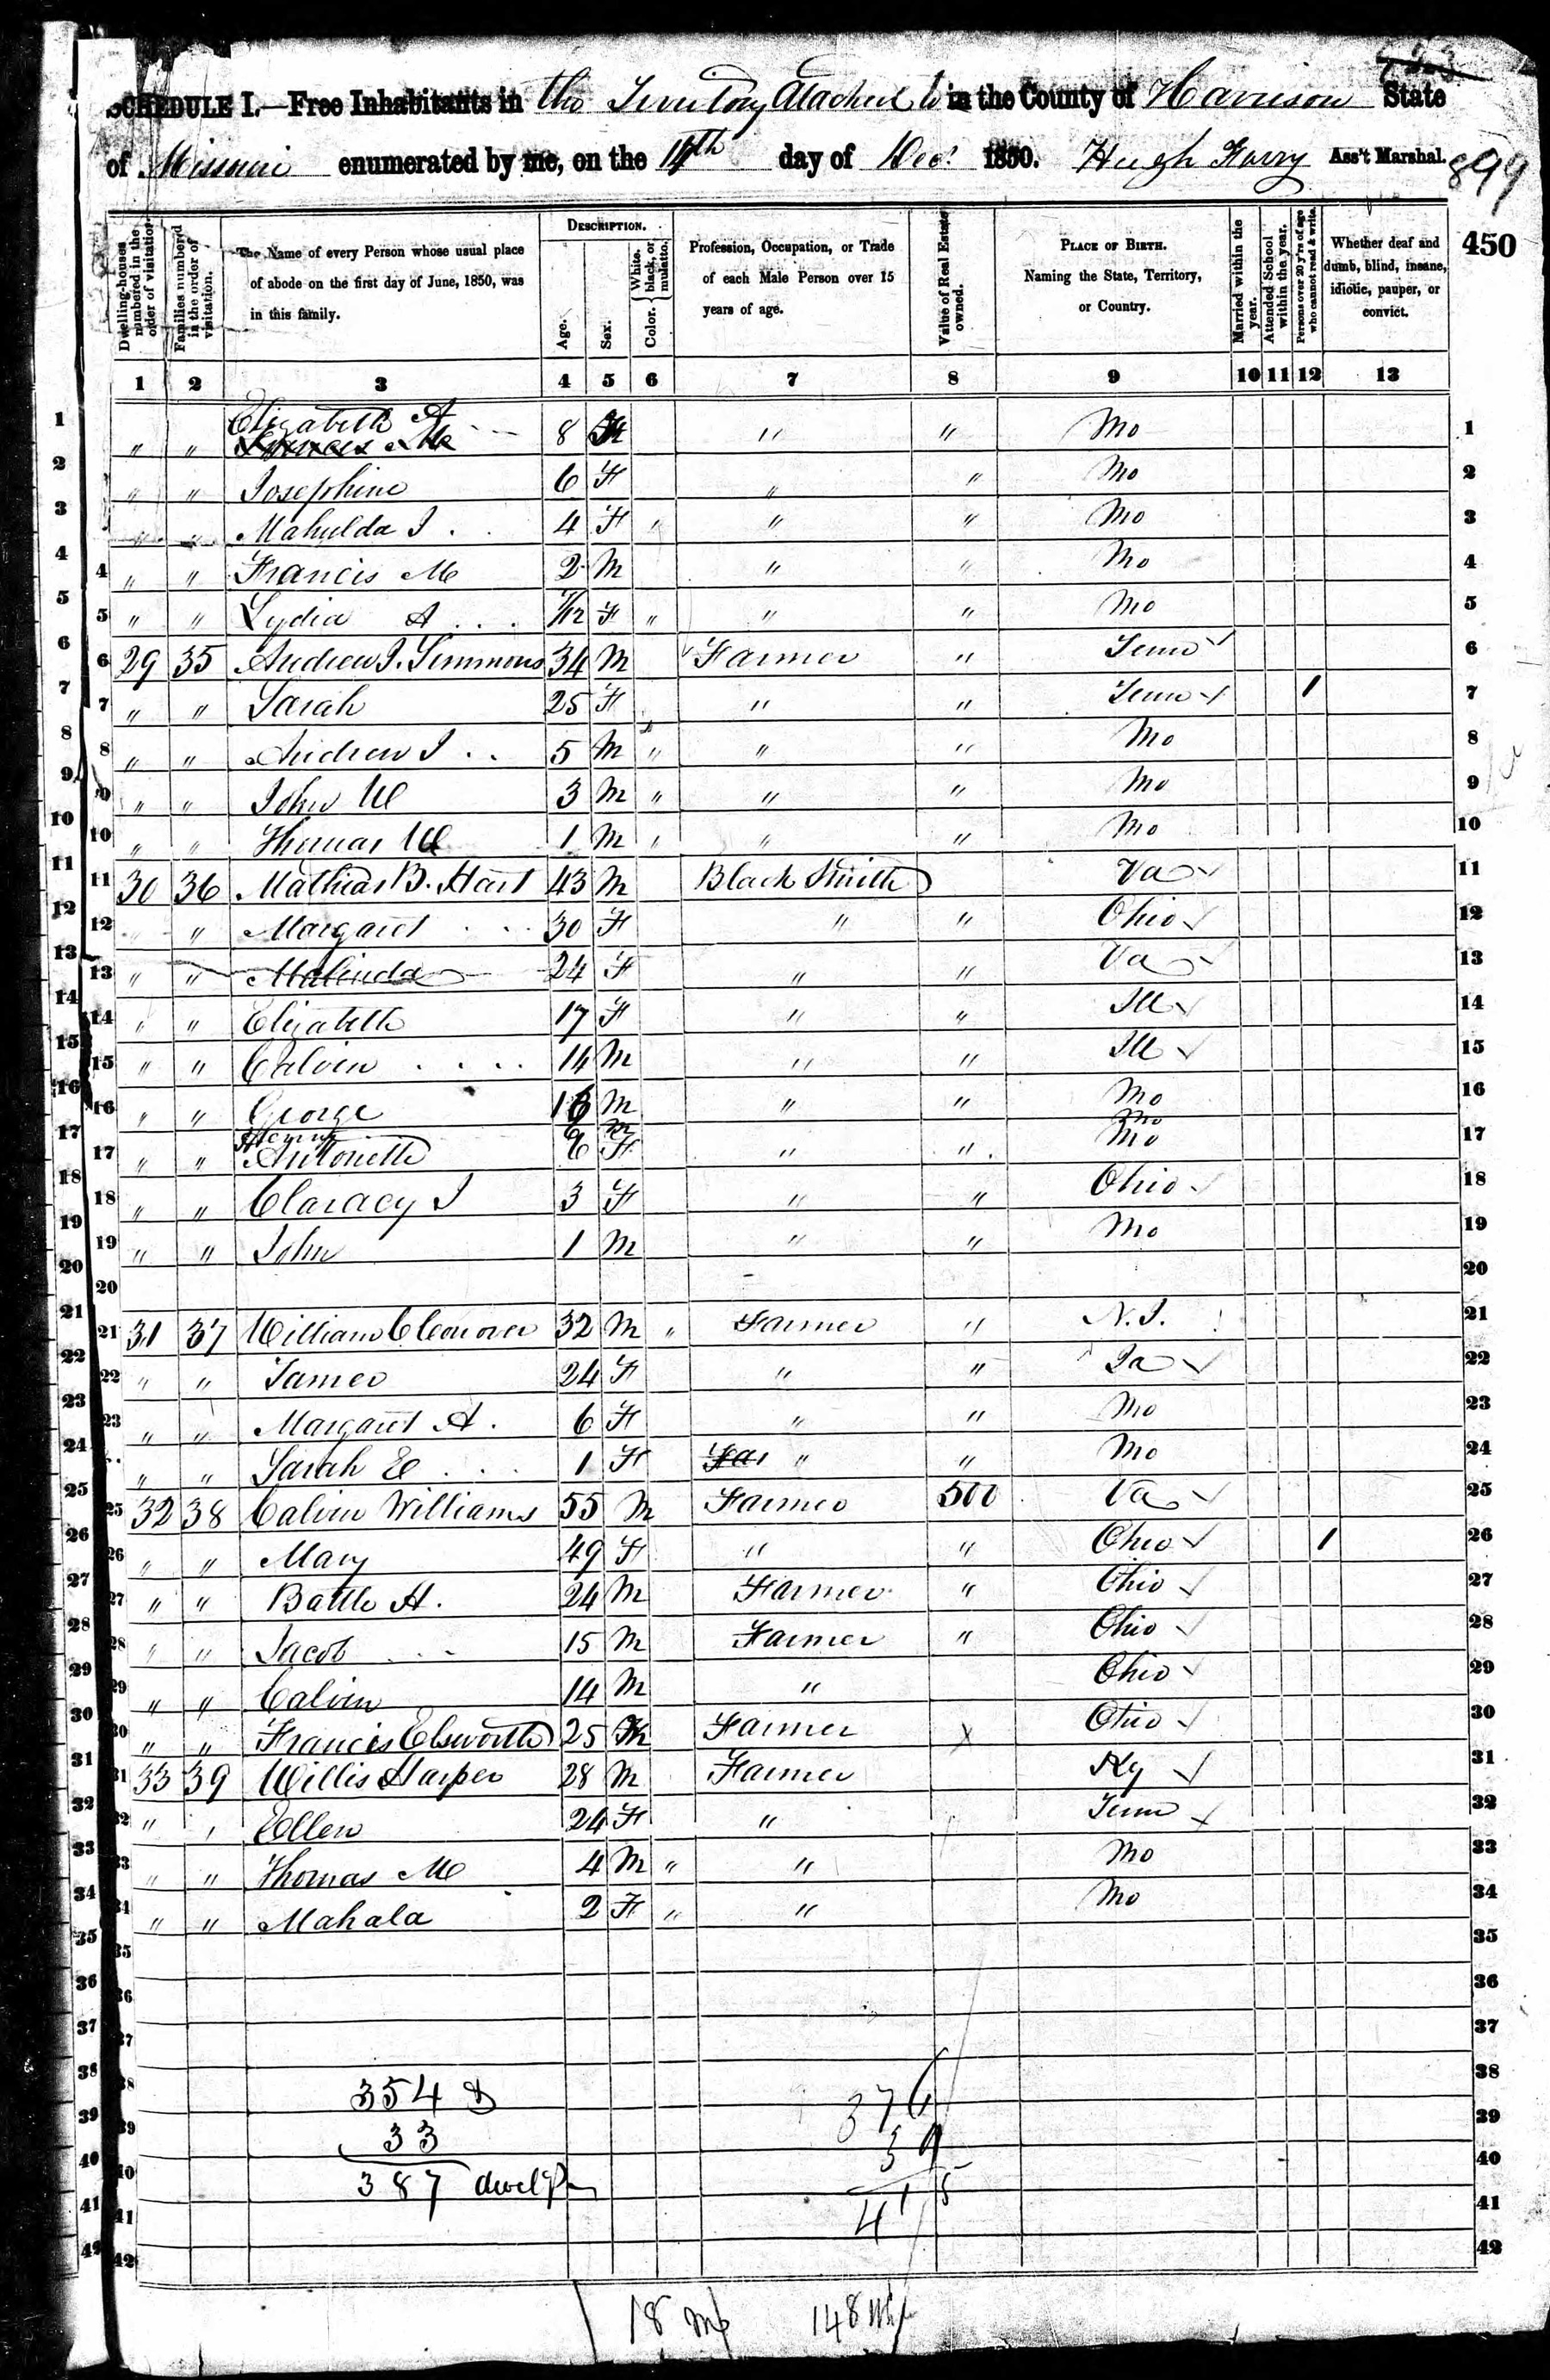 SCHEDULE I.—Free Inhabitants in the Territory Atached to in the County of Harrison State
of Missouri enumerated by me, on the 14th day of Dec. 1850. Hugh Ass't Marshal.
899
450
Dwelling-houses numbered in the order of visitation.
Families numbered in the order of visitation.
The Name of every Person whose usual place of abode on the first day of June, 1850, was in this family.
DESCRIPTION.
Age.
Sex.
Color. { White, black, or mulatto.
Profession, Occupation, or Trade of each Male Person over 15 years of age.
Value of Real Estate owned.
PLACE OF BIRTH. Naming the State, Territory, or Country.
Married within the year.
Attended School within the year.
Persons over 20 y'rs of age who cannot read & write.
Whether deaf and dumb, blind, insane, idiotic, pauper, or convict.
1 2 3 4 5 6 7 8 9 10 11 12 13
1 " " Elizabeth A 8 F " " Mo 1
2 " " Josephine 6 F " " Mo 2
3 " " Mahulda J. 4 F " " " Mo 3
4 " " Francis M 2 M " " Mo 4
5 " " Lydia A 1/12 F " " " Mo 5
6 29 35 Andrew J. Simmons 34 M Farmer " Tenn 6
7 " " Sarah 25 F " " Tenn 1 7
8 " " Andrew J 5 M " " " Mo 8
9 " " John W 3 M " " " Mo 9
10 " " Thomas W 1 M " " " Mo 10
11 30 36 Mathias B. Hart 43 M Black Smith Va 11
12 " " Margaret 30 F " " Ohio 12
13 " " Malinda 24 F " " Va 13
14 " " Elizabeth 17 F " " Ill 14
15 " " Calvin 14 M " " Ill 15
16 " " George 16 M " " Mo 16
Henry 6 M Mo
17 " " Antonette 6 F " " Mo 17
18 " " Claracy J 3 F " " Ohio 18
19 " " John 1 M " " Mo 19
20 20
21 31 37 William Cleonover 32 M " Farmer " N.J. 21
22 " " Tamer 24 F " " Ia 22
23 " " Margaret A. 6 F " " Mo 23
24 " " Sarah E 1 F Far " " Mo 24
25 32 38 Calvin Williams 55 M Farmer 500 Va 25
26 " " Mary 49 F " " Ohio 1 26
27 " " Battle H. 24 M Farmer " Ohio 27
28 " " Jacob 15 M Farmer " Ohio 28
29 " " Calvin 14 M " Ohio 29
30 " " Francis Elsworth 25 M Farmer X Ohio 30
31 33 39 Willis Harper 28 M Farmer Ky 31
32 " " Ellen 24 F " Tenn 32
33 " " Thomas M 4 M " " Mo 33
34 " " Mahala 2 F " " Mo 34
35 35
36 36
37 37
38 354 D 376 38
39 33 39 39
40 387 415 40
41 41
42 42
18 148